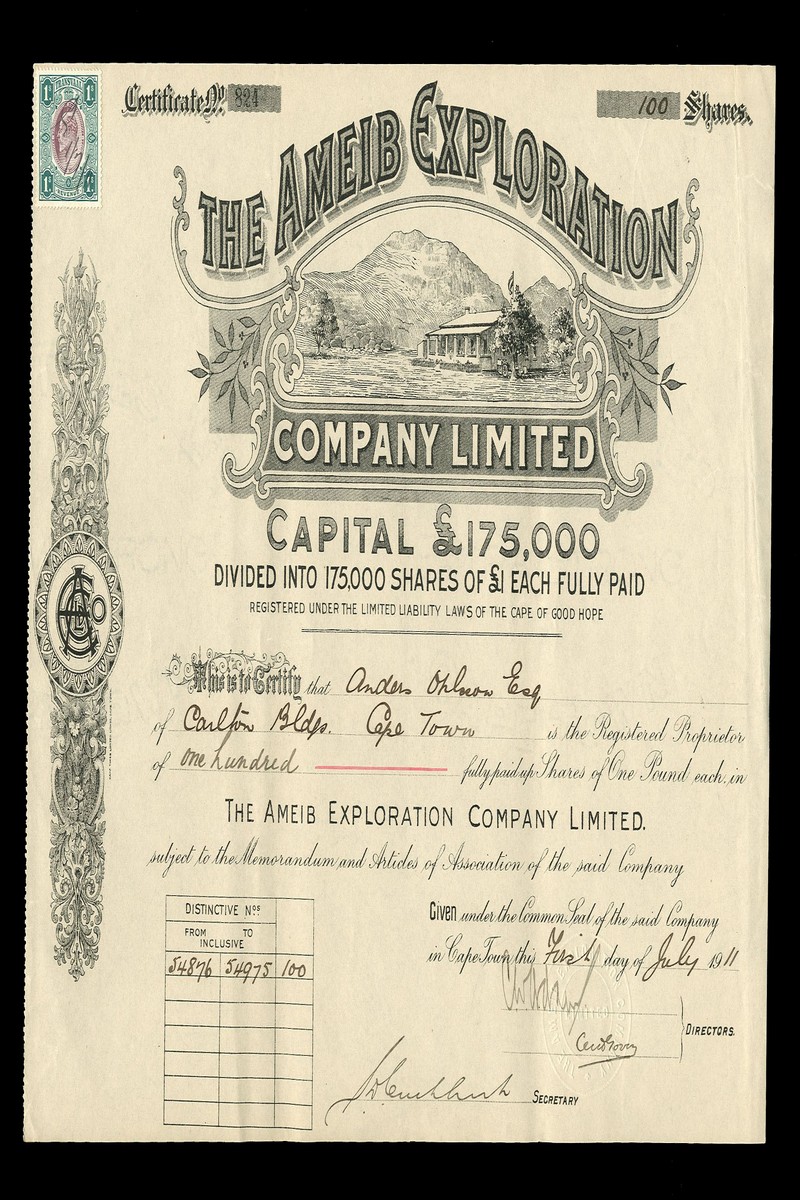 TRANSVAAL
1/- 1/-
1/- 1/-
REVENUE
Certificate No. 824
100 Shares.
THE AMEIB EXPLORATION
COMPANY LIMITED
CAPITAL £175,000
DIVIDED INTO 175,000 SHARES OF £1 EACH FULLY PAID
REGISTERED UNDER THE LIMITED LIABILITY LAWS OF THE CAPE OF GOOD HOPE
This is to Certify that Anders Ohlsson Esq
of Carlton Bldgs. Cape Town is the Registered Proprietor
of One hundred fully paid up Shares of One Pound each, in
THE AMEIB EXPLORATION COMPANY LIMITED.
subject to the Memorandum and Articles of Association of the said Company
Given under the Common Seal of the said Company
in Cape Town this First day of July 1911
DISTINCTIVE Nos
FROM TO
INCLUSIVE
54876 54975 100
DIRECTORS.
SECRETARY